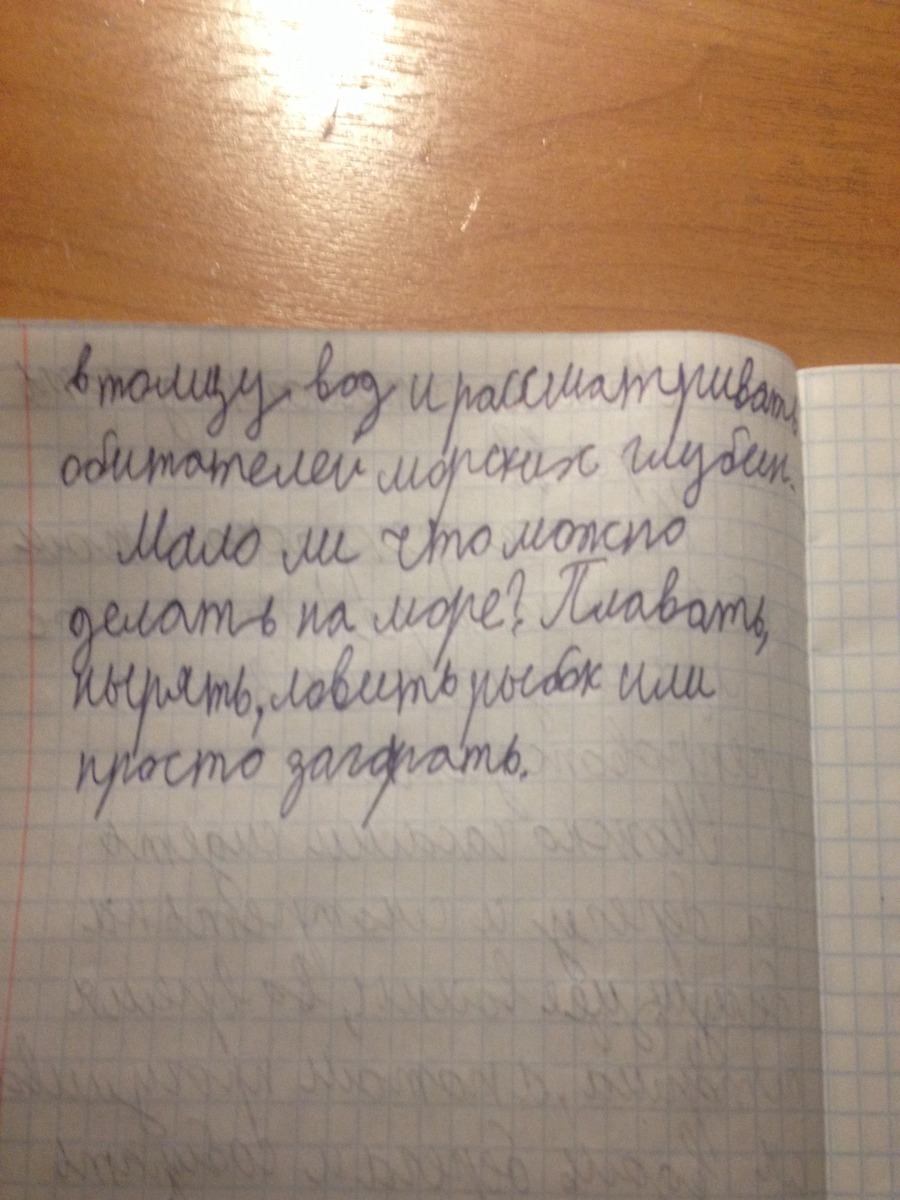 в толщу вод и рассматривать
обитателей морских глубин.
Мало ли что можно
делать на море? Плавать,
нырять, ловить рыбок или
просто загорать.